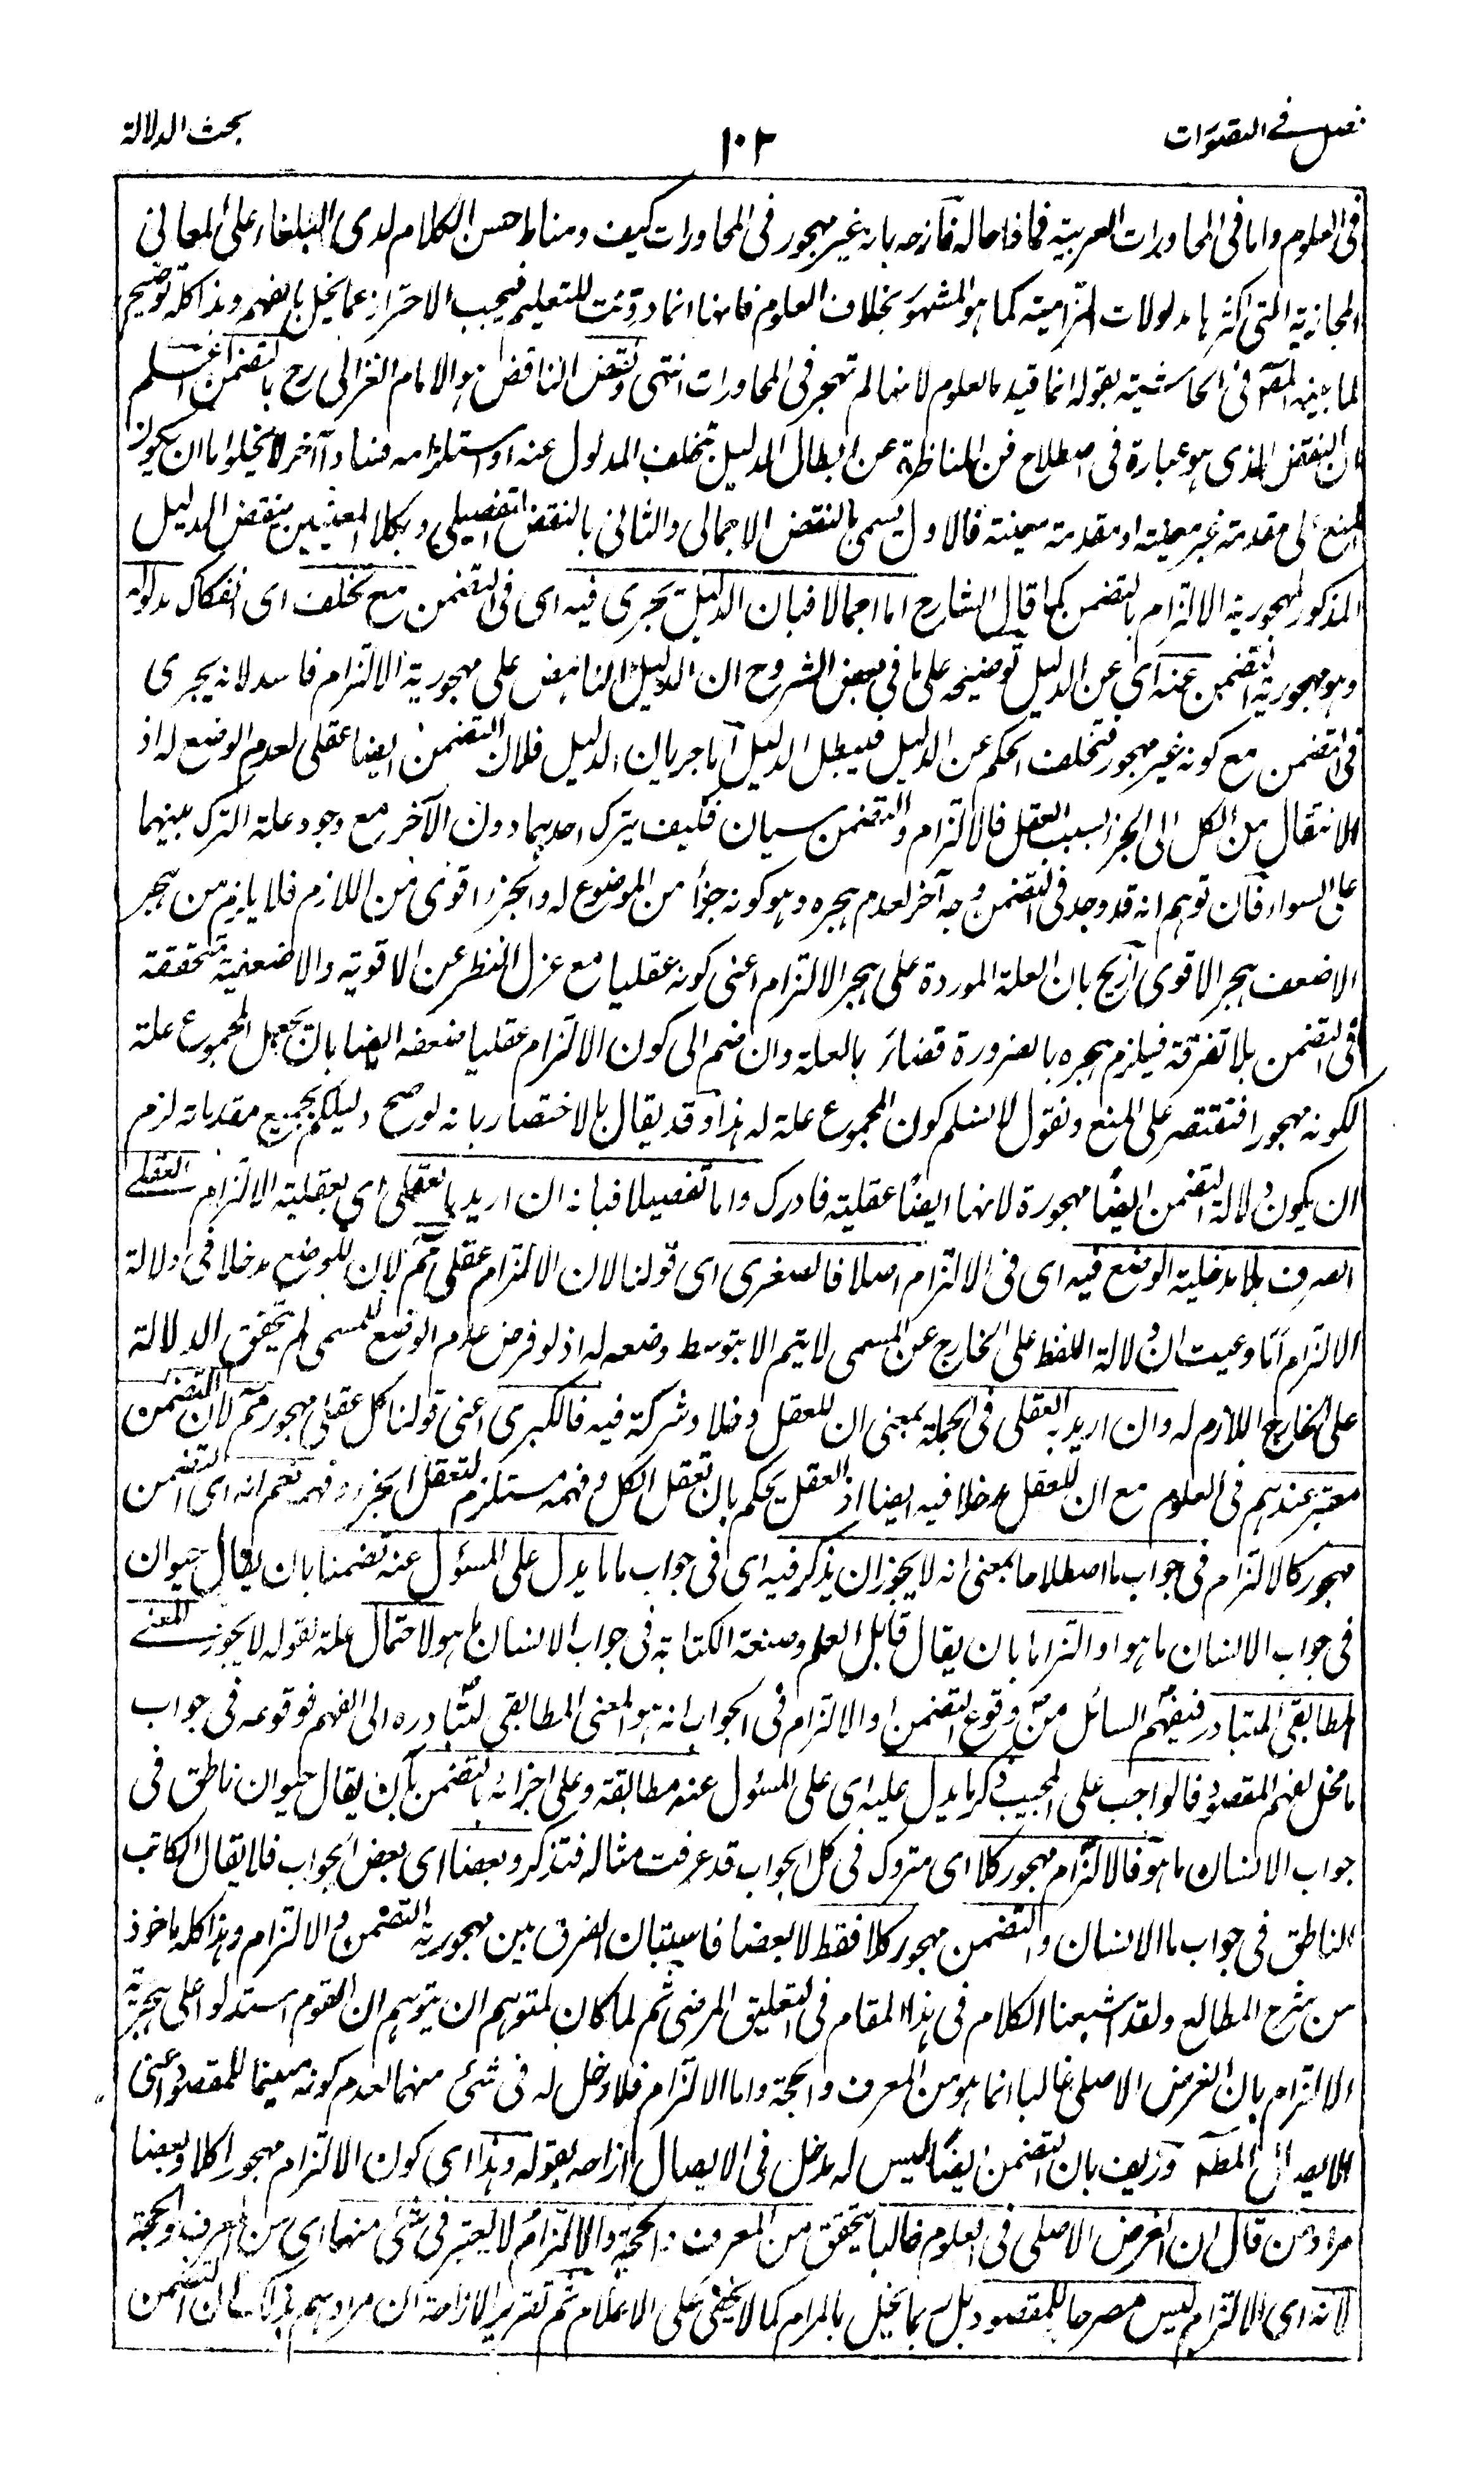 فصل فی التصورات
١٠٢
بحث الدلالة
فی العلوم واما فی المحاورات العربیة فما ذا حاله فازاحه بانه غیر مهجور فی المحاورات کیف ومناط حسن الکلام لدی البلغاء علی المعانی
المجازیة التی اکثرها مدلولات التزامیة کما هو المشهور بخلاف العلوم فانها انما دونت للتعلیم فیجب الاحتراز عما یخل بالفهم وهذا کله توضیح
لما بینه المصؔ فی الحاشیة بقوله انما قید بالعلوم لانها لم تهجر فی المحاورات انتهی ونقض الناقض هو الامام الغزالی رح بالتضمن اعلم
ان النقض الذی هو عبارة فی اصطلاح فن المناظرة عن ابطال الدلیل بتخلف المدلول عنه او استلزامه فسادا آخر لا یخلو اما ان یکون
المنع الی مقدمة غیر معینة او مقدمة معینة فالاول یسمی بالنقض الاجمالی والثانی بالنقض التفصیلی وبکلا المعنیین ینقض الدلیل
المذکور لمهجوریة الالتزام بالتضمن کما قال الشارح اما اجمالا فبان الدلیل یجری فیه ای فی التضمن مع تخلف ای انفکاک مدلوله
وهو مهجوریة التضمن عنه ای عن الدلیل توضیحه علی ما فی بعض الشروح ان الدلیل الناهض علی مهجوریة الالتزام فاسد لانه یجری
فی التضمن مع کونه غیر مهجور فتخلف الحکم عن الدلیل فیبطل الدلیل اما جریان الدلیل فلان التضمن ایضا عقلی لعدم الوضع له اذ
الانتقال من الکل الی الجزء بسبب العقل فالالتزام والتضمن سیان فکیف یترک احدهما دون الآخر مع وجود علة الترک بینهما
علی السواء فان توهم انه قد وجد فی التضمن وجه آخر لعدم هجره وهو کونه جزأ من الموضوع له والجزء اقوی من اللازم فلا یلزم من هجر
الاضعف هجر الاقوی ازیح بان العلة الموردة علی هجر الالتزام اعنی کونه عقلیا مع عزل النظر عن الاقویة والاضعفیة متحققة
فی التضمن بلا تفرقة فیلزم هجره بالضرورة قضاء بالعلة وان ضم الی کون الالتزام عقلیا ضعفه ایضا بان یجعل المجموع علة
لکونه مهجورا فنقتصر علی المنع ونقول لا نسلم کون المجموع علة له هذا وقد یقال بالاختصار بانه لو صح دلیلکم بجمیع مقدماته لزم
ان یکون دلالة التضمن ایضًا مهجورة لانها ایضًا عقلیة فادرک واما تفصیلا فبانه ان ارید بالعقلی ای بعقلیة الالتزام العقلی
الصرف بلا مدخلیة الوضع فیه ای فی الالتزام اصلا فالصغری ای قولنا لان الالتزام عقلی ممؔ لان للوضع مدخلا فی دلالة
الالتزام اما وعیت ان دلالة اللفظ علی الخارج عن المسمی لا یتم الا بتوسط وضعه له اذ لو فرض عدم الوضع للمسمی لم یتحقق الدلالة
علی الخارج اللازم له وان ارید به العقلی فی الجملة بمعنی ان للعقل دخلا وشرکة فیه فالکبری اعنی قولنا کل عقلی مهجور ممؔ لان التضمن
معتبر عندهم فی العلوم مع ان للعقل مدخلا فیه ایضا اذ العقل یحکم بان تعقل الکل وفهمه مستلزم لتعقل الجزء وفهمه نعم انه ای التضمن
مهجور کالالتزام فی جواب ما اصطلاحا بمعنی انه لا یجوز ان یذکر فیه ای فی جواب ما ما یدل علی المسئول عنه تضمنا بان یقال حیوان
فی جواب الانسان ما هو او التزاما بان یقال قابل العلم وصنعة الکتابة فی جواب الانسان ما هو لاحتمال علة لقوله لا یجوز المعنی
المطابقی المتبادر فیفهم السائل من وقوع التضمن او الالتزام فی الجواب انه هو المعنی المطابقی لتبادره الی الفهم فوقوعه فی جواب
ما مخل لفهم المقصود فالواجب علی المجیب ذکر ما یدل علیه ای علی المسئول عنه مطابقة وعلی اجزائه بالتضمن بان یقال حیوان ناطق فی
جواب الانسان ما هو فالالتزام مهجور کلا ای متروک فی کل الجواب قد عرفت مثاله فتذکر وبعضا ای بعض الجواب فلا یقال الکاتب
الناطق فی جواب ما الانسان والتضمن مهجور کلا فقط لا بعضا فاستبان الفرق بین مهجوریة التضمن والالتزام وهذا کله ماخوذ
من شرح المطالع ولقد اشبعنا الکلام فی هذا المقام فی التعلیق المرضی ثم لما کان لمتوهم ان یتوهم ان القوم استدلوا علی هجریة
الالتزام بان الغرض الاصلی غالبا انما هو من المعرف والحجة واما الالتزام فلا دخل له فی شئ منهما لعدم کونه معینا للمقصود اعنی
الایصال الی المطؔ وزیف بان التضمن ایضًا لیس له مدخل فی الایصال ازاحه بقوله وهذا ای کون الالتزام مهجورا کلا وبعضا
مراد من قال ان الغرض الاصلی فی العلوم غالبا یتحقق من المعرف والحجة والالتزام لا یعتبر فی شئ منهما ای من المعرف والحجة
لانه ای الالتزام لیس مصرحا للمقصود بل ربما یخل بالمرام کما لا یخفی علی الاعلام ثم تقریر الازاحة ان مرادهم بذاک ان التضمن